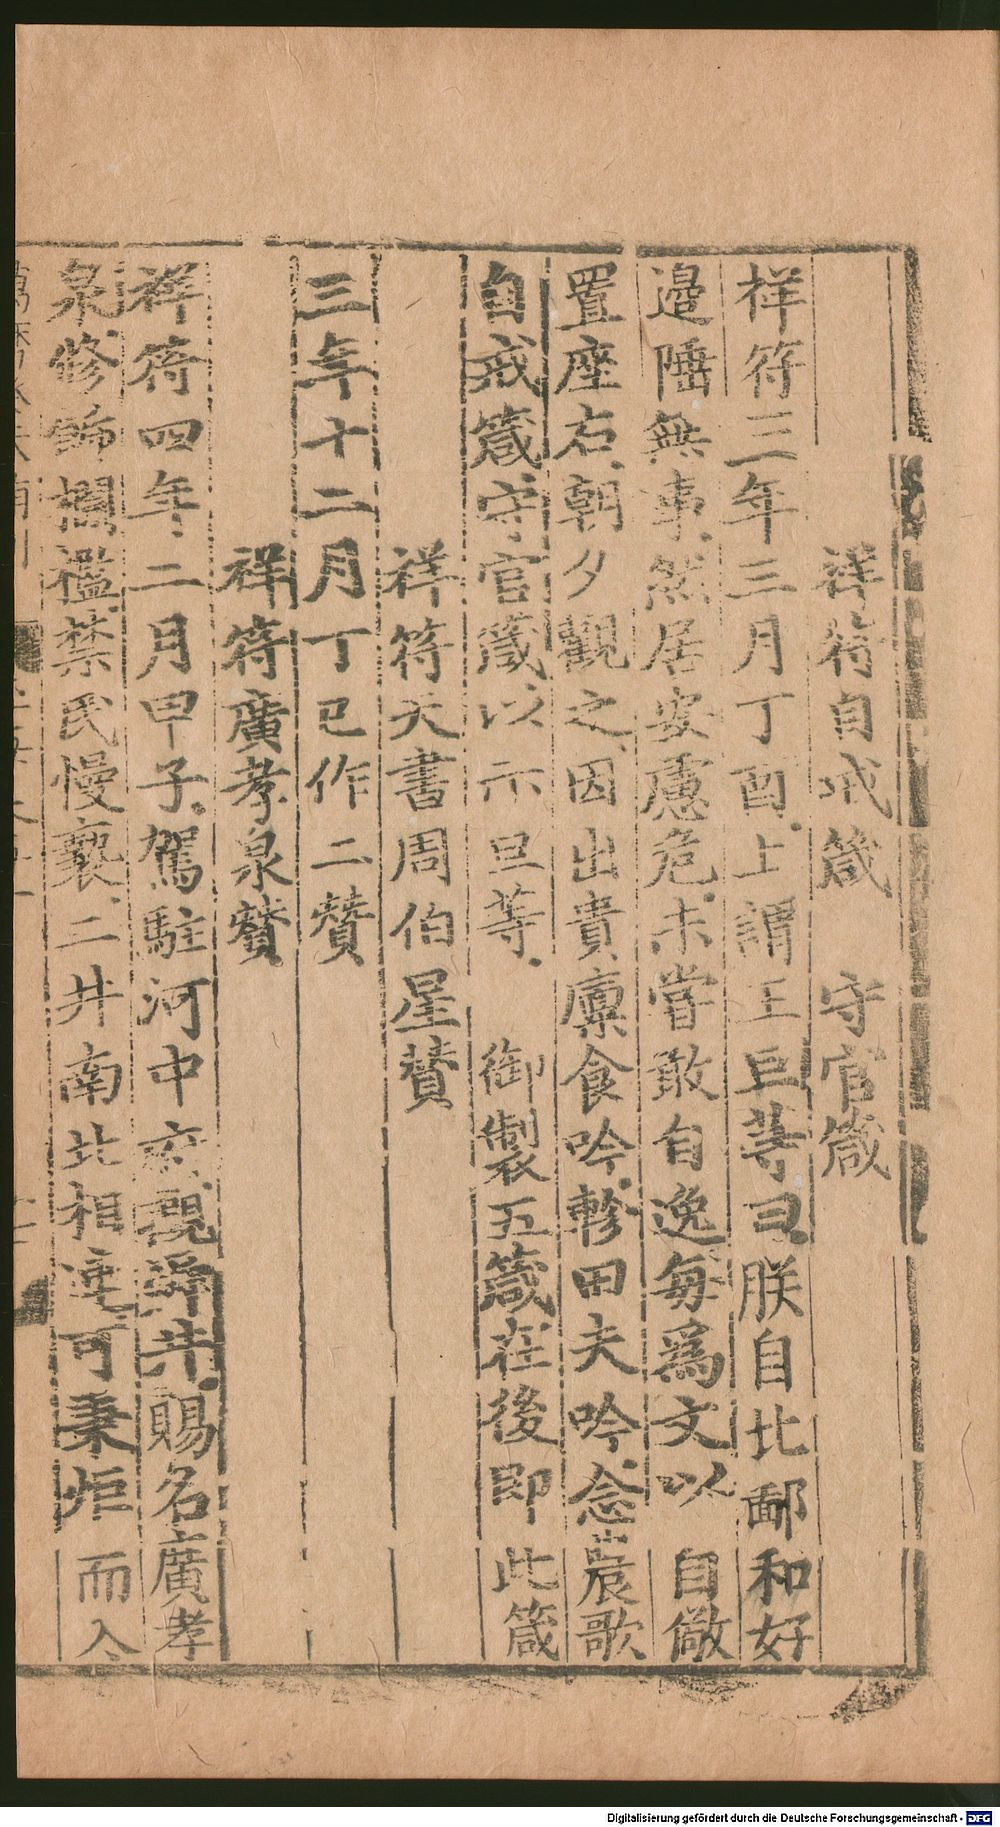 祥符自戒箴　守官箴
祥符三年三月丁酉上謂王旦等曰朕自北鄙和好
邉陲無事然居安慮危未嘗敢自逸毎爲文以自儆
置座右朝夕觀之因出貴廩食吟軫田夫吟念農歌
自戒箴守官箴以示旦等　御製五箴在後即此箴
祥符天書周伯星贊
三年十二月丁巳作二贊
祥符廣孝泉贊
祥符四年二月甲子駕駐河中府觀舜井賜名廣孝
泉修飾欄檻禁民慢褻二井南北相達可秉炬而入
Digitalisierung gefördert durch die Deutsche Forschungsgemeinschaft - DFG